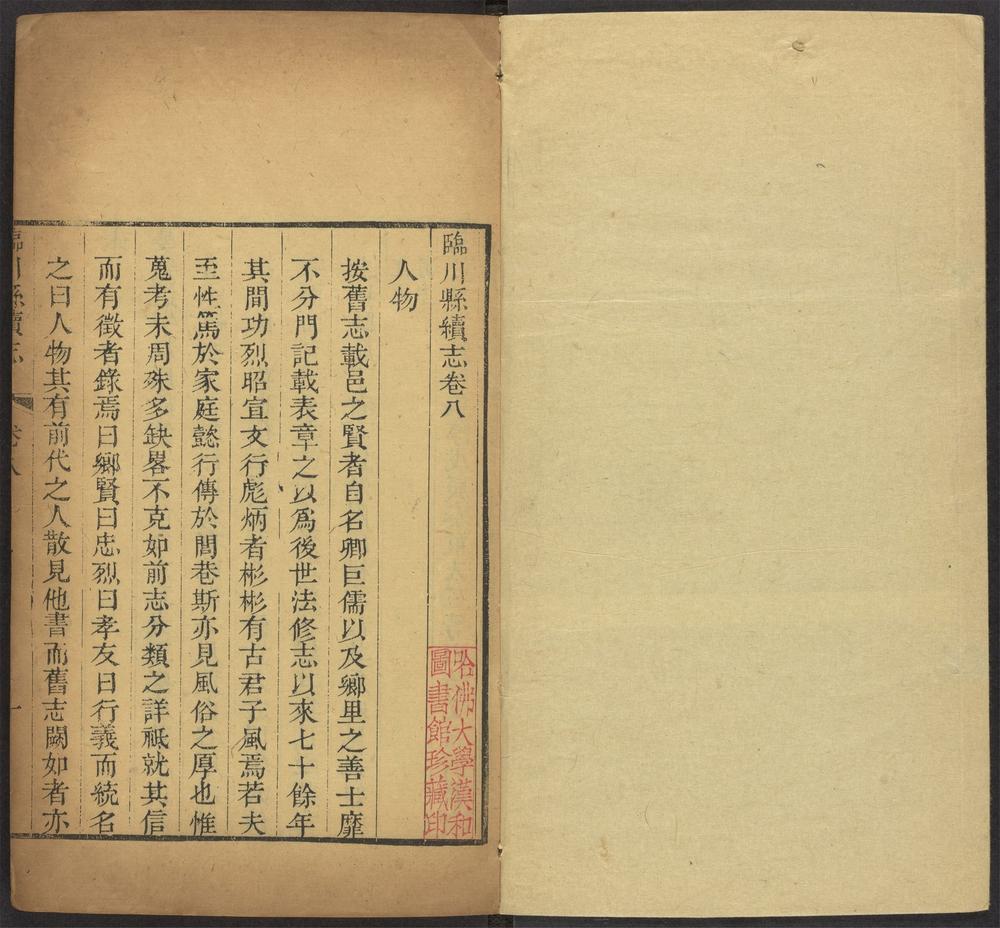 臨川縣續志卷八
人物
按舊志載邑之賢者自名卿巨儒以及鄉里之善士靡
不分門記載表章之以爲後世法修志以來七十餘年
其間功烈昭宣文行彪炳者彬彬有古君子風焉若夫
至性篤於家庭懿行傳於閭巷斯亦見風俗之厚也惟
蒐考未周殊多缺畧不克如前志分類之詳祗就其信
而有徵者錄焉曰鄉賢曰忠烈曰孝友曰行義而統名
之曰人物其有前代之人散見他書而舊志闕如者亦
臨川縣續志 卷八 一
哈佛大學漢和
圖書館珍藏印